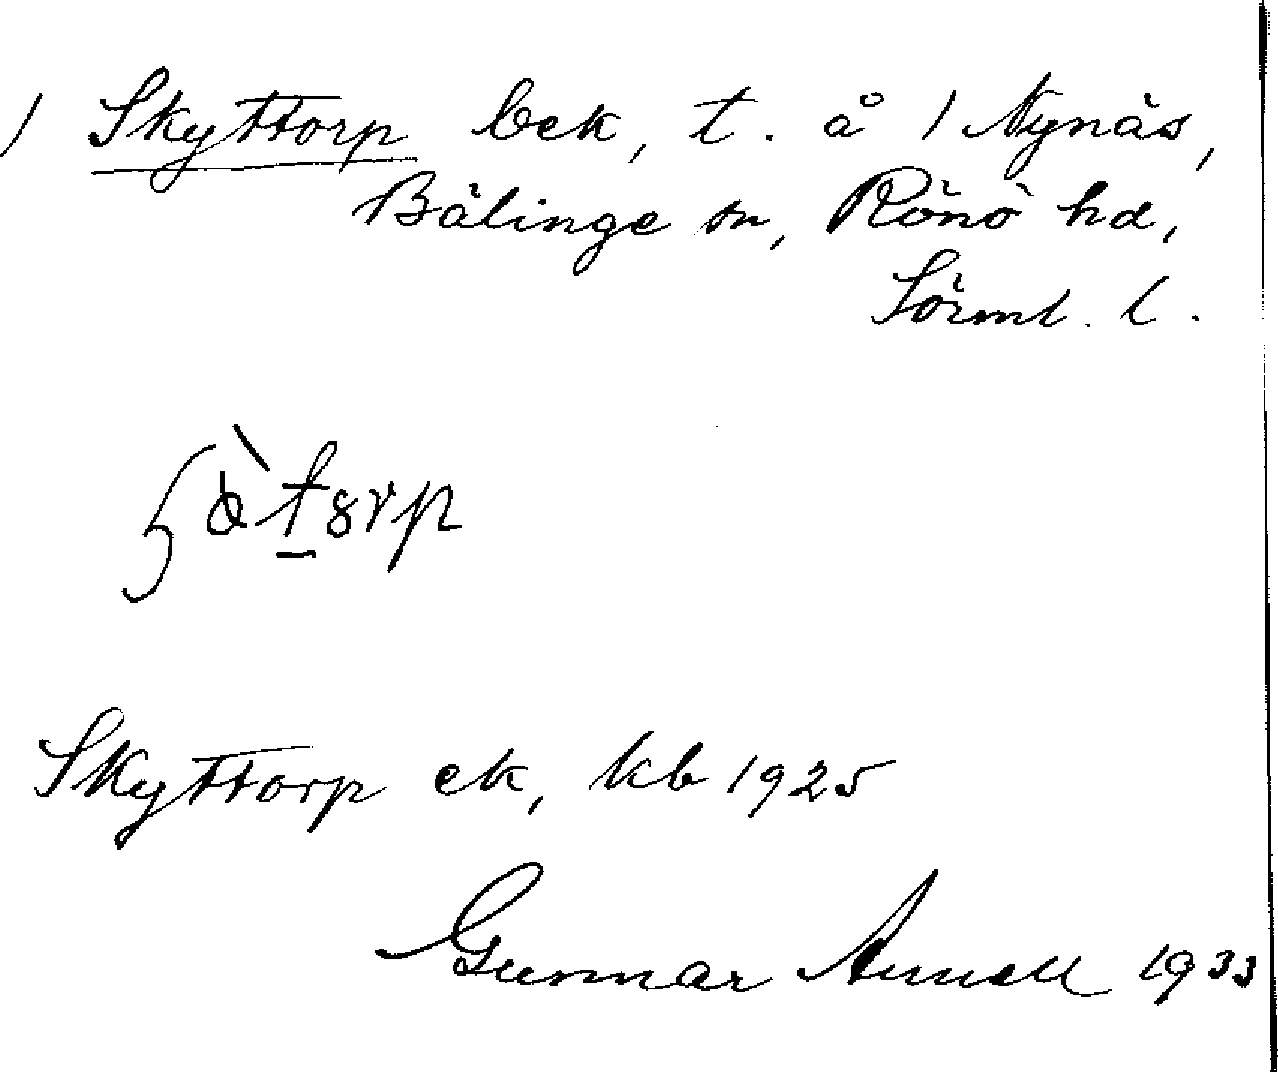 / Skyttorp bek, t. å 1 Nynäs,
Bälinge sn, Rönö hd,
Sörml. l.
Skyttorp ek, kb 1925
Gunnar 1933